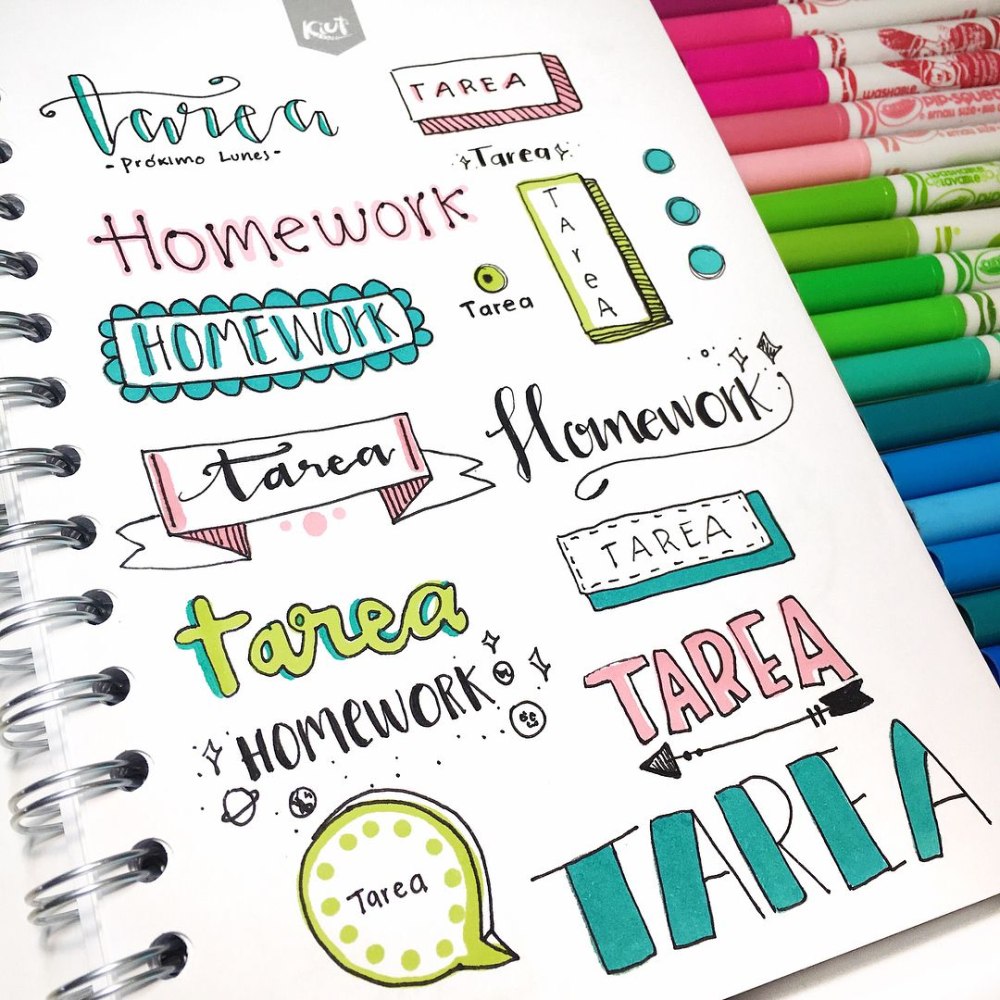 Kiut
tarea
- Próximo Lunes -
TAREA
Tarea
Homework
TAreA
Tarea
HOMEWORK
Homework
tarea
TAREA
tarea
HOMEWORK
TAREA
Tarea
TAREA
WASHABLE
PIP-SQUEAKS